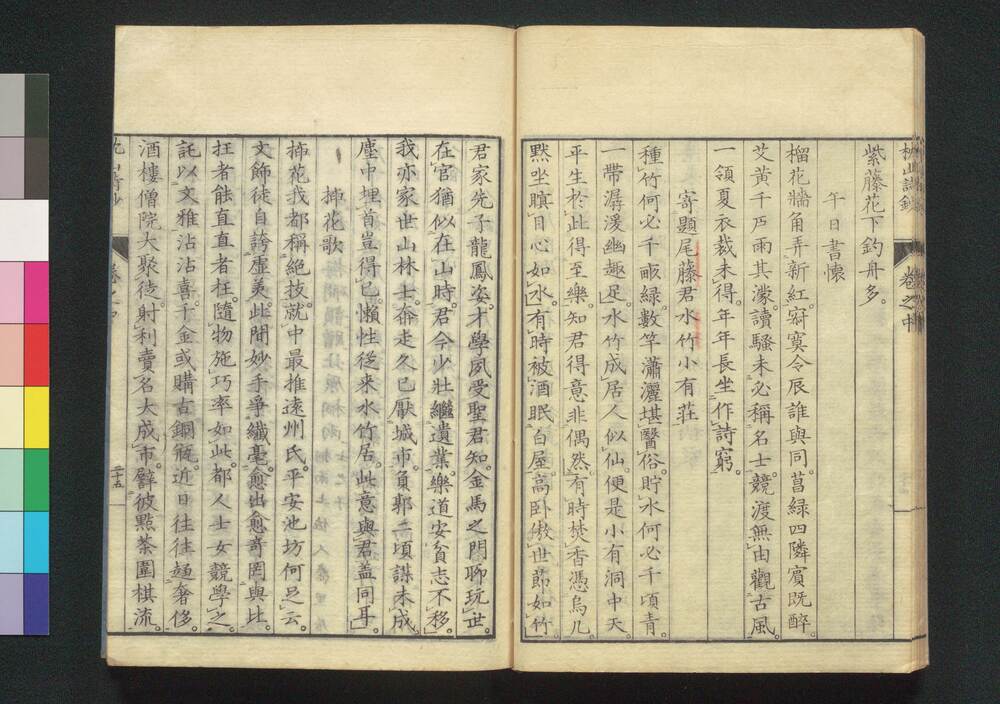 紫藤花下釣舟多。
午日書懷
榴花牆角弄新紅。寂寞令辰誰與同。菖綠四隣賓既醉。
艾黃千戶雨其濛。讀騷未必稱名士。競渡無由觀古風。
一領夏衣裁未得。年年長坐作詩窮。
寄題尾藤君水竹小有莊
種竹何必千畝綠。數竿瀟灑堪醫俗。貯水何必千頃青。
一帶潺湲幽趣足。水竹成居人似仙。便是小有洞中天。
平生於此得至樂。知君得意非偶然。有時焚香憑烏几。
默坐瞑目心如水。有時被酒眠白屋。高臥傲世節如竹。
君家先子龍鳳姿。才學夙受聖君知。金馬之門聊玩世。
在官猶似在山時。君今少壯繼遺業。樂道安貧志不移。
我亦家世山林士。奔走久已厭城市。負郭二頃謀未成。
塵中埋首豈得已。懶性從來水竹居。此意與君蓋同耳。
揷花歌
揷花我都稱絕技。就中最推遠州氏。平安池坊何足云。
文飾徒自誇虛美。此間妙手爭纎毫。愈出愈奇罔與比。
枉者能直直者枉。隨物施巧率如此。都人士女競學之。
託以文雅沾沾喜。千金或購古銅瓶。近日往往趨奢侈。
酒樓僧院大聚徒。射利賣名大成市。譬彼點茶圍棋流。
卷之中
二十五